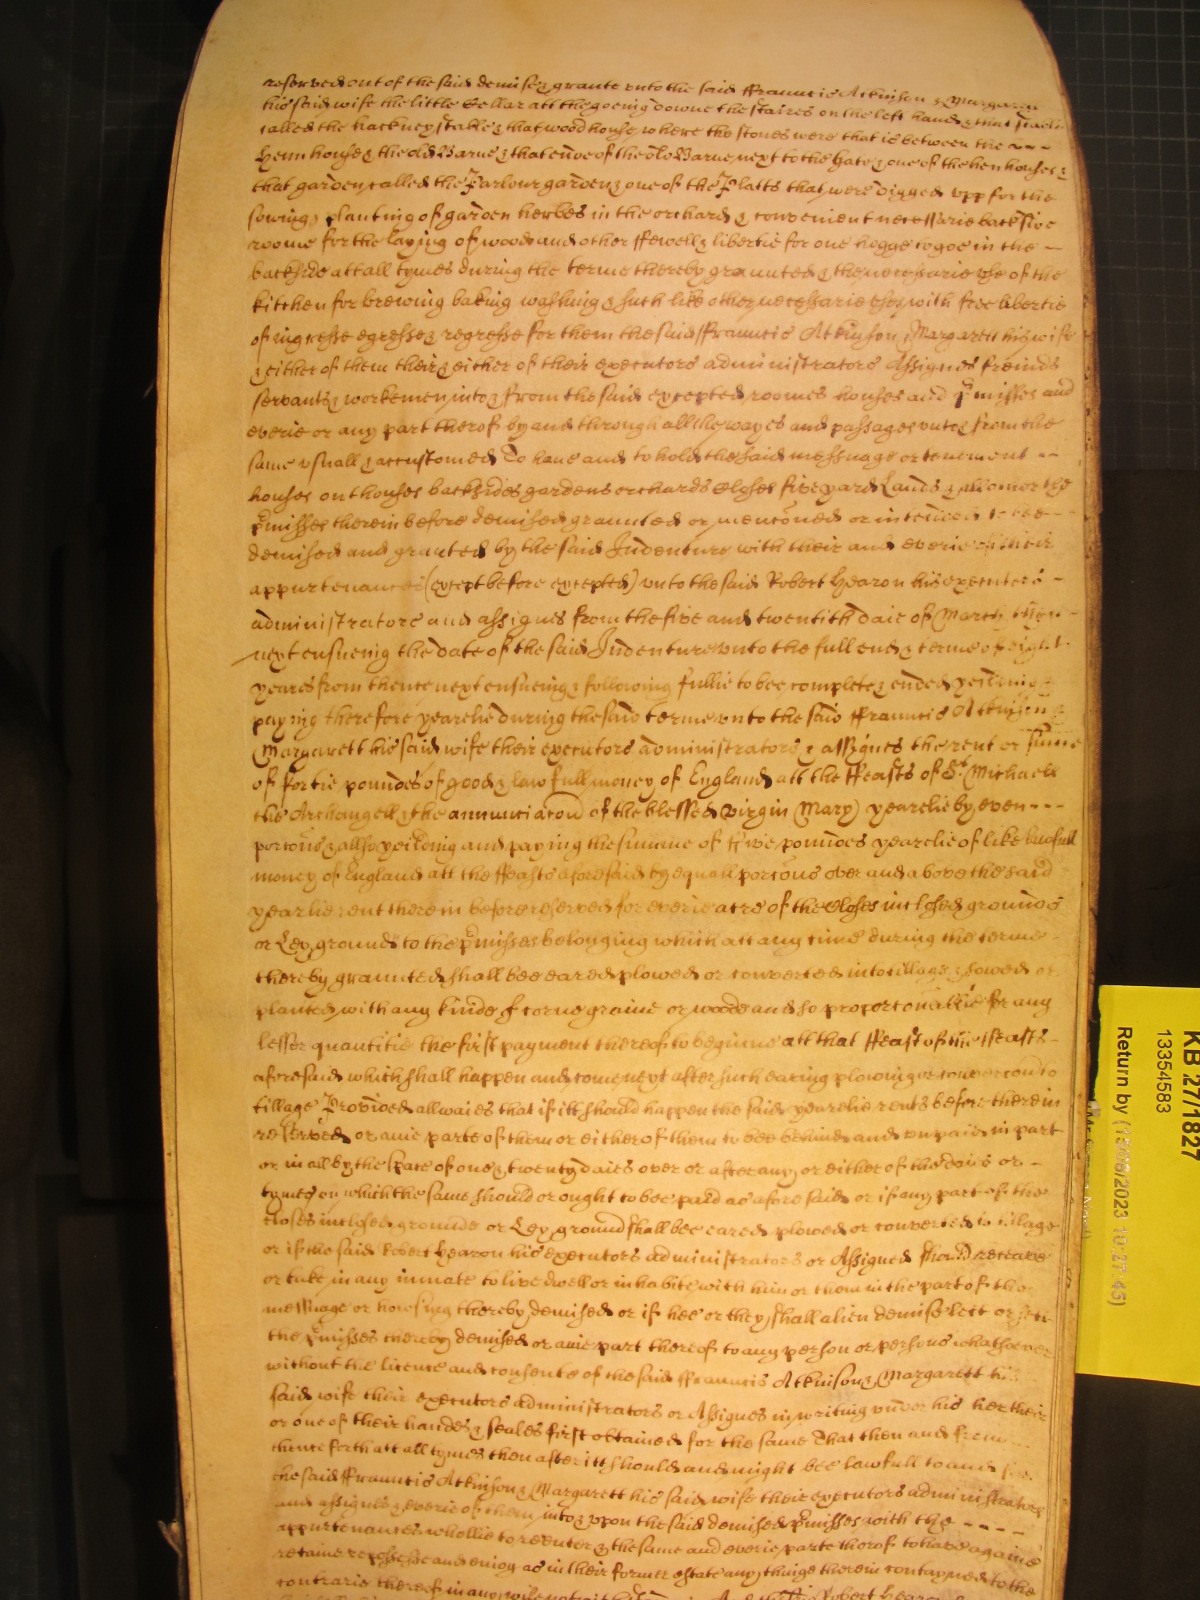 reserved out of the said demise & graunte unto the said Frauncis Atkinson & Margarett
his said wife the little Cellar att the goeing downe the staires on the left hand & that stable
called the hackney stable & that wood house where the stones were that is between the
henn house & the old Barne & that ende of the old Barne next to the gate & one of the hen houses &
that garden called the Parlour garden & one of the Platts that were digged upp for the
sowing & planting of garden herbes in the orchard & convenient necessarie backside
roome for the laying of wood and other ffewell & libertie for one hogge to goe in the
backside att all tymes during the terme thereby graunted & the necessarie use of the
kitchen for brewing baking washing & such like other necessarie uses with free libertie
of ingresse egresse & regresse for them the said Frauncis Atkinson & Margarett his wife
& either of them their & either of their executors administrators Assignes freinds
servants & workemen into & from the said excepted roomes houses and p'misses and
everie or any part therof by and through all the wayes and passages unto & from the
same usuall & accustomed To have and to hold the said messuage or tenement
houses outhouses backsides gardens orchards closes five yard Lands & all other the
p'misses therein before demised graunted or mentoned or intended to bee
demised and granted by the said Indenture with their and everie of their
appurtenances (except before excepted) unto the said Robert Hearon his executors
administrators and assignes from the five and twentith daie of March then
next ensueing the date of the said Indenture unto the full end & terme of eight
yeares from thence next ensueing & following fullie to bee complete & ended yeilding &
paying therefore yearelie during the said terme unto the said Frauncis Atkinson &
Margarett his said wife their executors administrators & assignes the rent or summe
of fortie poundes of good & lawfull money of England att the ffeasts of St Michaell
the Archangell & the annunciacon of the blessed virgin Mary yearelie by even
portons & allso yeilding and paying the summe of five poundes yearelie of like lawfull
money of England att the ffeasts aforesaid by equall portons over and above the said
yearlie rent therein before reserved for everie acre of the closes inclosed grounds
or Ley ground to the p'misses belonging which att any time during the terme
thereby graunted shall bee eared plowed or converted into tillage & sowed or
planted with any kinde of corne graine or woade and so proportonablie for any
lesser quantitie the first payment thereof to beginne att that ffeast of the ffeasts
aforesaid which shall happen and come next after such earing plowing or convercon to
tillage Provided allwaies that if itt should happen the said yearelie rents before therein
reserved or anie parte of them or either of them to bee behind and unpaid in part
or in all by the space of one & twenty daies over or after any or either of the daies or
tymes on which the same should or ought to bee paid as aforesaid or if any part of the
closes inclosed grounds or Ley ground shall bee eared plowed or converted to tillage
or if the said Robert Hearon his executors administrators or Assignes should receave
or take in any inmate to live dwell or inhabite with him or them in the part of the
messuage or howsing thereby demised or if hee or they shall alien demise lett or sett
the p'misses thereby demised or anie part thereof to any person or persons whatsoever
without the licence and consente of the said Frauncis Atkinson & Margarett his
said wife their executors administrators or Assignes in writing under his her their
or one of their handes & seales first obtained for the same That then and from
thence forth att all tymes then after itt should and might bee lawfull to and for
the said Frauncis Atkinson & Margarett his said wife their executors administrators
and assignes & everie of them into & upon the said demised p'misses with the
appurtenances whollie to reenter & the same and everie parte therof to have againe
retaine repossesse and enioy as in their former estate any thinge therein contayned to the
contrarie thereof in any wise notwithstanding And the said Robert Hearon
KB 2771827
13354583
Return by (13/08/2023 10:27:45)